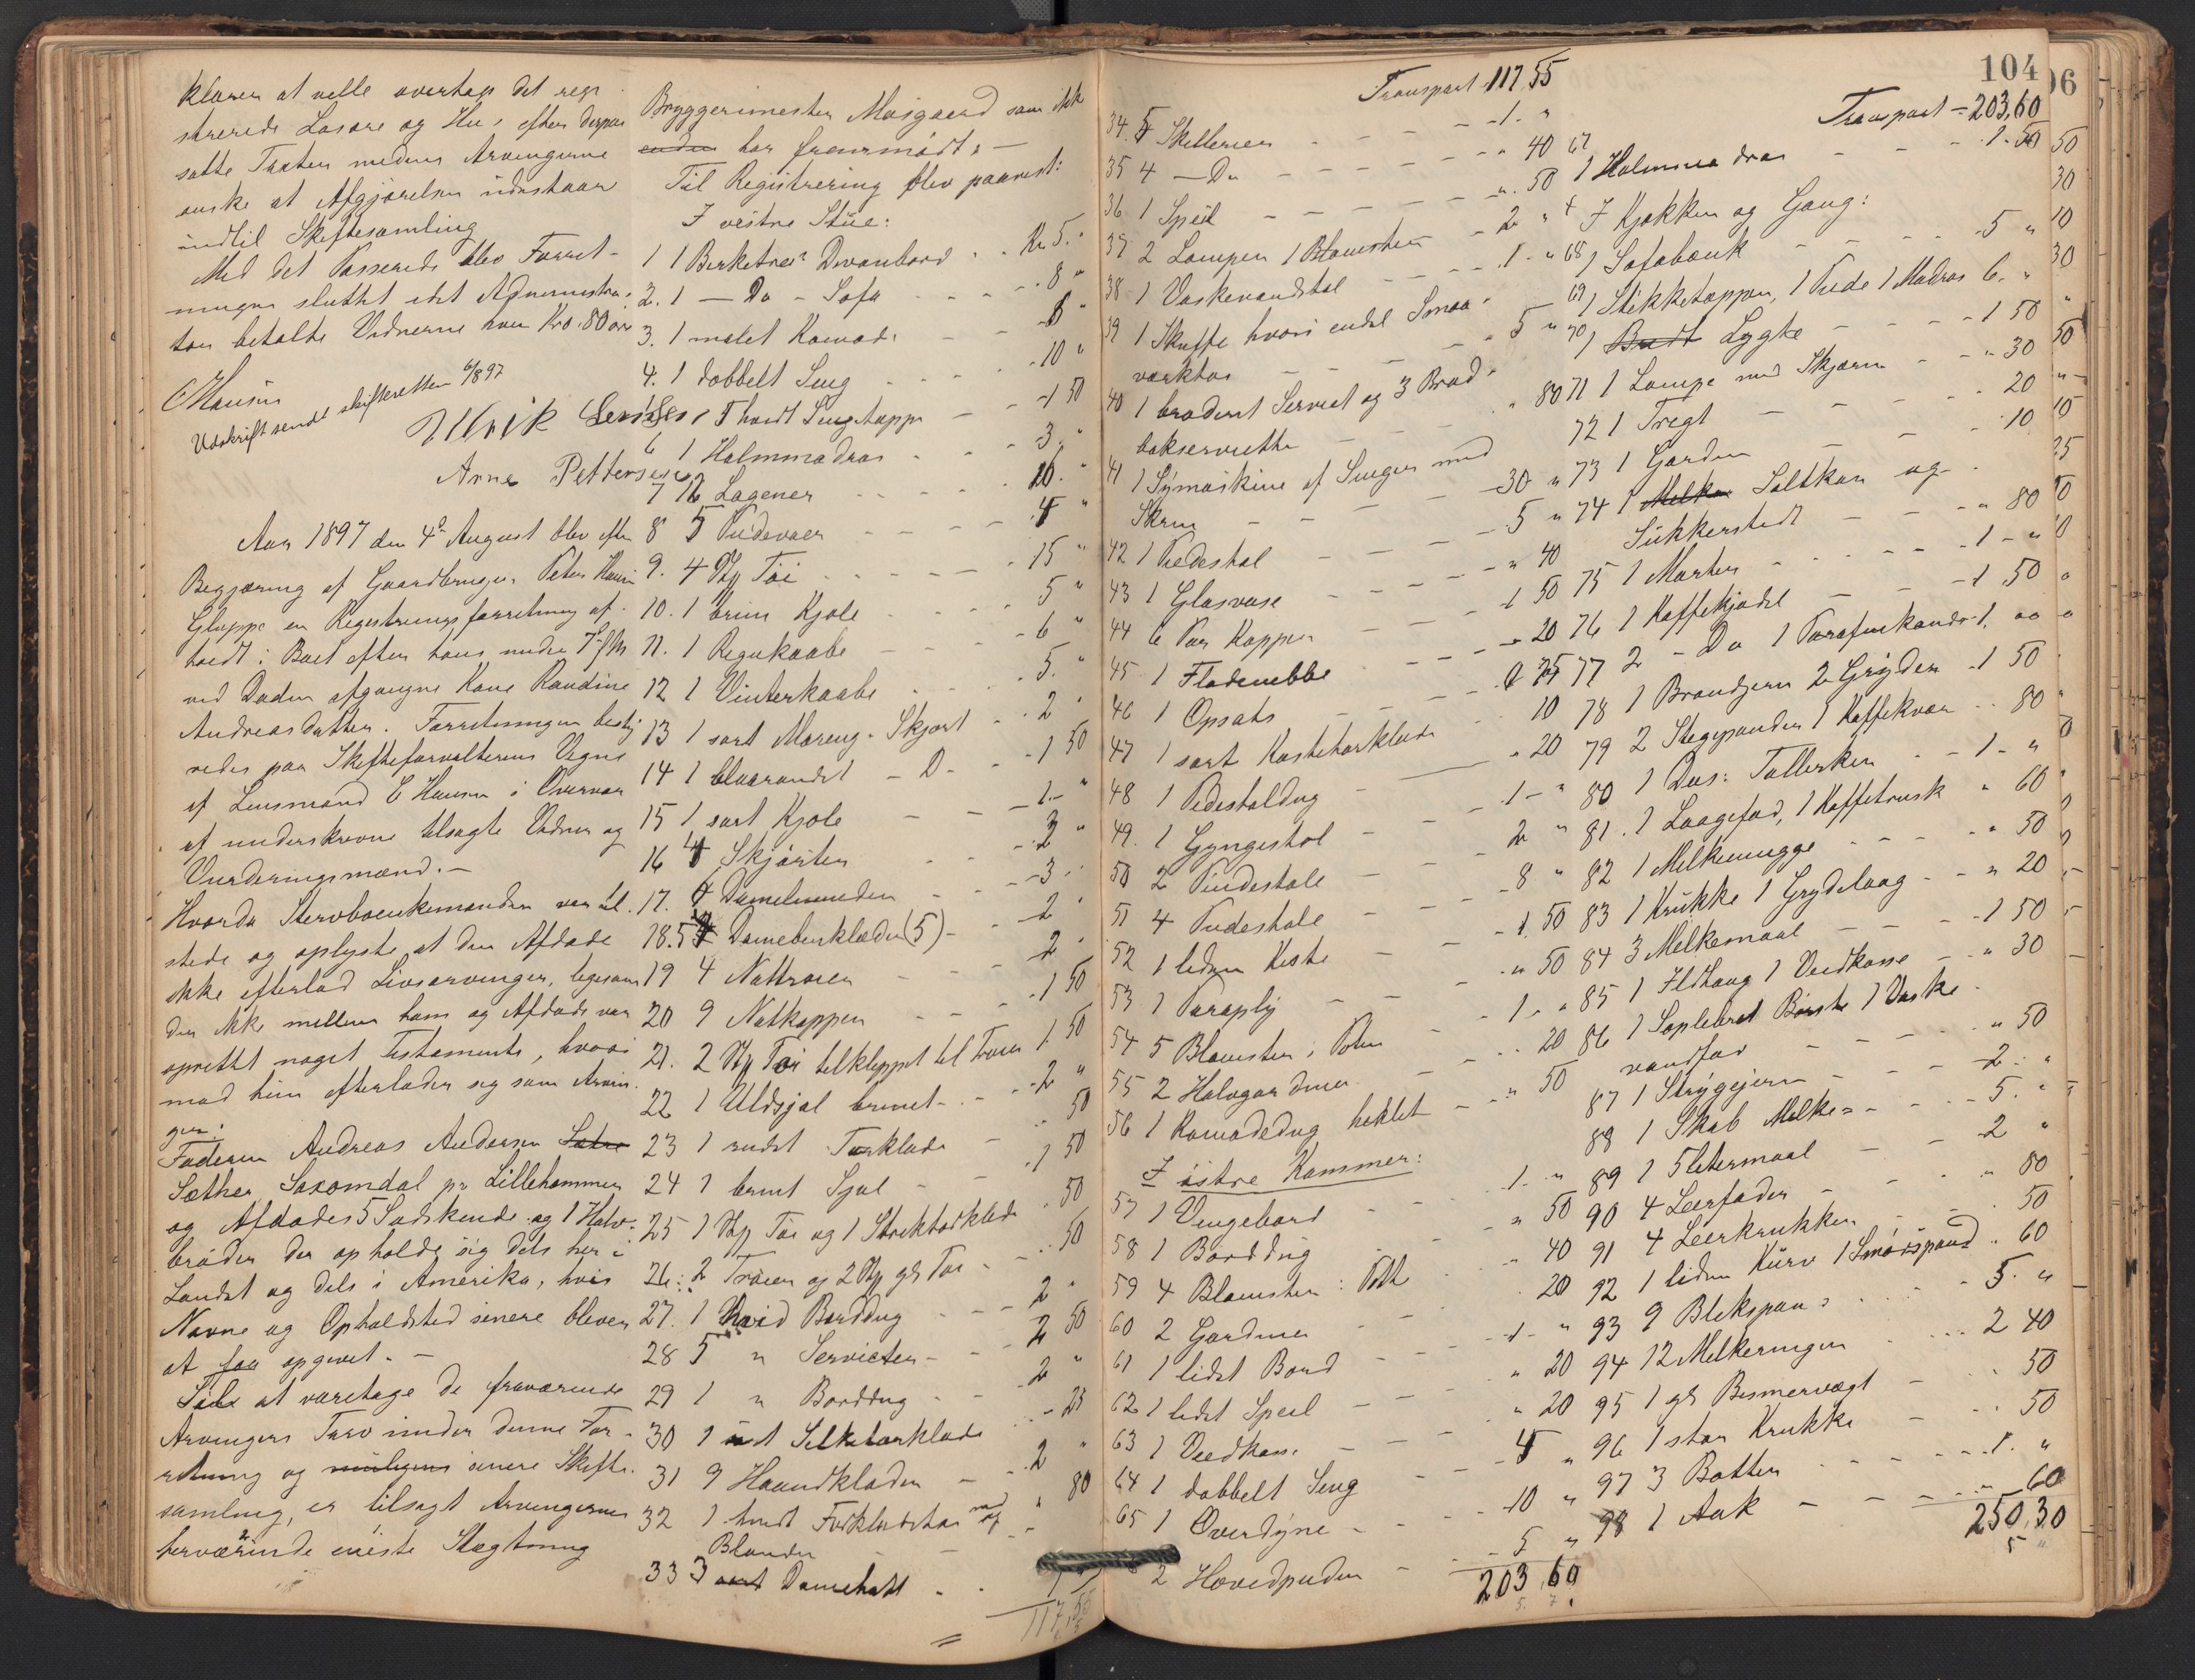 klærer at ville overtage det regi-
strerede Løsøre og Hus efter derpaa
satte Taxter medens Arvingerne
ønske at Afgjørelsen udestaar
indtil Skiftesamling
Med det Passerede blev Forret-
ningen sluttet idet Administra-
tor betalte Vidnerne hver Kro. 80 øre
E Hansen
Udskrift sendt skifteretten 6/8 97
Ulrik
Arne Pettersen
Aar 1897 den 4de August blev efter
Begjæring af Gaardbruger Peter Hansen
Gluppe en Registreringsforretning af-
holdt i Boet efter hans under 7de f M
ved Døden afgangne Kone Randine
Andreasdatter. Forretningen besty-
redes paa Skifteforvalterens Vegne
af Lensmand E Hansen i Overvær
af underskrevne tilsagte Vidner og
Vurderingsmænd. —
Hvorda Stervboenkemanden var til-
stede og oplyste at den Afdøde
ikke efterlod Livsarvinger, ligesom
der ikke mellem ham og Afdøde var
oprettet noget Testamente, hvori-
mod hun efterlader sig som Arvin-
ger:
Faderen Andreas Andersen Sætre
Sæther Saxomdal pr Lillehammer
og Afdødes 5 Sødskende og 1 Halv-
broder der opholde sig dels her i
Landet og dels i Amerika, hvis
Navne og Opholdsted senere bliver
at faa opgivet. —
at varetage de fraværende
Arvingers Tarv under denne For-
retning og muligens senere Skifte-
samling, er tilsagt Arvingernes
herværende eneste Slægtning
Bryggerimester Mosgaard som ikke
enden har fremmødt. —
Til Registrering blev paavist:
I vestre Stue:
1 1 Birketræs Divanbord . . Kr 5. "
2. 1 — Do - Sofa - - - 8 "
3. 1 malet Komode - - 8 "
4. 1 dobbelt Seng - - - 10 "
5 1 hvidt Sengetæppe - - 1 50
6 1 Halmmadras - - - 3. "
7 16 Lagener - - - 16. "
8 5 Pudevaer - - - 4 "
9. 4 Stk Tøi - - - 15 "
10. 1 brun Kjole - - - 5 "
11. 1 Regnkaabe - - - 6 "
12 1 Vinterkaabe - - - 5. "
13 1 sort Moreng. Skjørt - - 2 "
14 1 blaarandet - D - - 1 50
15 1 sort Kjole - - - 1. "
16 4 Skjørter - - - 2 "
17. 4 Damelinneder - - - 3 -
18. 5 Damebenklæder (5) - - 2 "
19 4 Nattrøier - - - 2 "
20 9 Natkapper - - - 1 50
21. 2 Stk Tøi tilklippet til Trøier 1 50
22 1 Uldsjal brunet - - - 2 "
23 1 rudet Tørklæde - - 50
24 1 brunt Sjal - - - 1 50
25 1 Stk Tøi og 1 Striktørklæde . 50
26. 2 Trøier og 2 Stk gl Tøi - - 50
27. 1 Hvid Borddug - - - 2 "
28 5 " Servietter - - - 2 50
29 1 " Borddug - - - 2 "
30 1 Silketørklæde - - 25
31 9 Haandklæder - - 2 "
32 1 hvidt Forklædetøi med og " 80
Blonder
33 3 sort Damehatt - -
117,55
Transport 117 55
34. 5 Skillerier - - - 1. "
35 4 — Do - - - " 40
36 1 Speil - - - " 50
37 2 Lamper 1 Blomster - 2 "
38 1 Vaskevandstol - - - 1 - "
39 1 Skuffe hvori endel Smaa-
værktøi - - - 5 "
40 1 broderet Serviet og 3 Brød-
bakservietter - - - " 80
41 1 Symaskine af Singer med
Skrin - - - 30 "
42 1 Piedestal - - - 5 "
43 1 Glasvase - - - " 40
44 6 Par Kopper - - - 1 50
45 1 Flødenebbe - - - " 20
46 1 Opsats - - - 75
47 1 sort Kastetørklæde - - 10
48 1 Pidestaldug - - - " 20
49. 1 Gyngestol - - - 1 - "
50 2 Pindestole - - - 2 "
51 4 Pudestole - - - 8 "
52 1 liden Kiste - - - 1. 50
53 1 Paraply - - - " 50
54 5 Blomster i Potter - - 1 - "
55 2 Halvgardiner - - - 20
56 1 Komodedug heklet - - " 50
I østre Kammer:
57 1 Vengebord - - - 1. "
58 1 Borddug - - - " 50
59 4 Blomster i Pott - - 40
60 2 Gardiner - - - 20
61 1 lidet Bord - - - 1 - "
62 1 lidet Speil - - - " 20
63 1 Vedkasse - - - " 20
64 1 dobbelt Seng - - - 4 "
65 1 Overdyne - - - 10 "
2 Hovedpuder - - - 5 "
203,60
104
Transport = 203,60
67 1 Halmmadras - - - 1. 50
I Kjøkken og Gang:
68 1 Sofabænk - - - 5 "
69 1 Stikketæppe, 1 Pude 1 Madras 6. "
70 1 Budt Lygte - - - 1 50
71 1 Lampe med Skjærm - - " 30
72 1 Tregt - - - 20
73 1 Gardin - - - 10
74 1 Melke Saltkar og
Sukkerstedt - - - " 80
75 1 Morter - - - 1 - "
76 1 Kaffekjedel - - - 1 50
77 2 - Do 1 Parafinkande 1. 00
78 1 Brandjern 2 Gryder - 1 50
79 2 Stegepander 1 Kaffekvær . . 80
80 1 Dus: Tallerken - - 1 - "
81. 1 Laagefad, 1 Kaffetrusk " 60
82 1 Melkemugge - - - " 50
83 1 Krukke 1 Grydelaag - - " 20
84 3 Melkemaal - - - 1 50
85 1 Ildtaug 1 Vedkasse - " 30
86 1 Soplebret Børste 1 Vaske-
vandfad - - - " 50
87 1 Strygejern - - - 2 . "
88 1 Skab Melke= - - - 5. "
89 1 5 litermaal - - - 2 "
90 4 Leerfader - - - " 80
91 4 Leerkrukker - - - 50
92 1 liden Kurv 1 Smørspand . 60
93 9 Blikspan - - - 5. "
94 12 Melkeringer - - - 2 40
95 1 gl Bismervægt - - - 50
96 1 stor Krukke - - - 50
97 3 Bøtter - - - 1. "
98 1 Aak - - - " 60
250,30